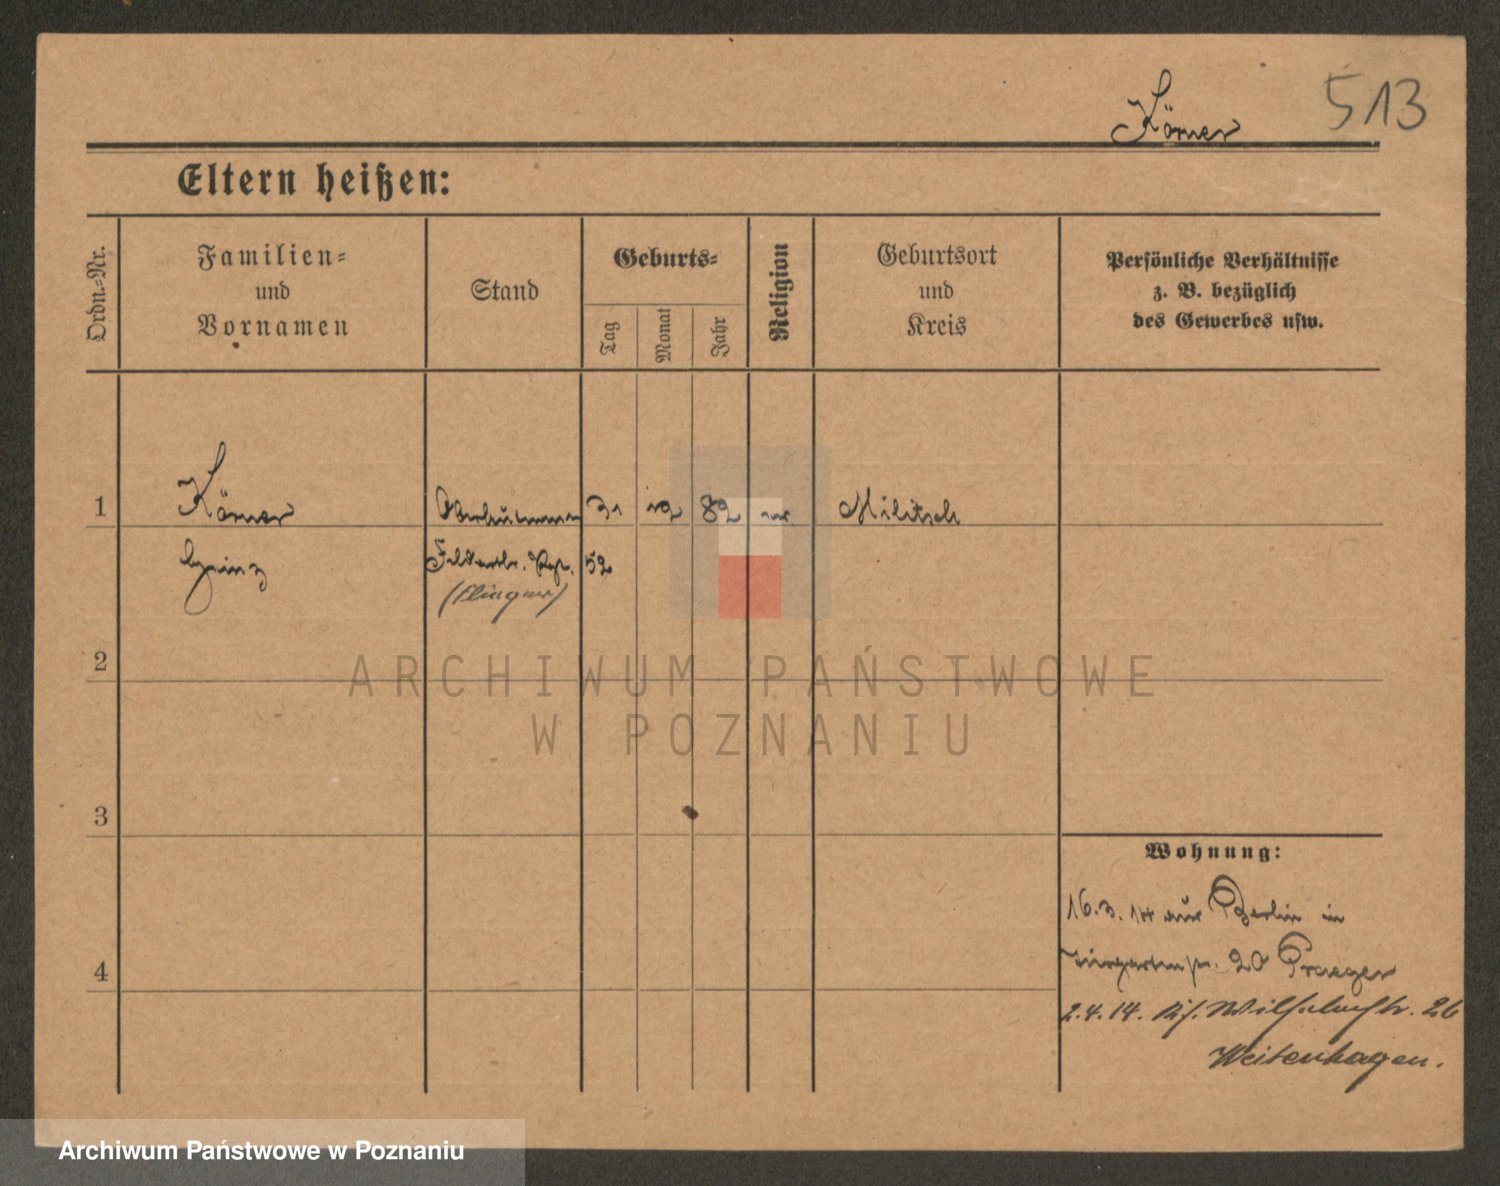 Körner 513
Eltern heißen:
Ordn.-Nr.
Familien-
und
Vornamen
Stand
Geburts-
Tag
Monat
Jahr
Religion
Geburtsort
und
Kreis
Persönliche Verhältnisse
z. B. bezüglich
des Gewerbes usw.
1 Körner 31 12 82 Militsch
Heinz Feldartl. Rgt. 52
2
3
4
Wohnung:
16.3.14 aus Berlin in
Tiergartenstr. 20 Praeger
2.4.14. Wilhelmstr. 26
Weitenhagen.
ARCHIWUM PAŃSTWOWE
W POZNANIU
Archiwum Państwowe w Poznaniu